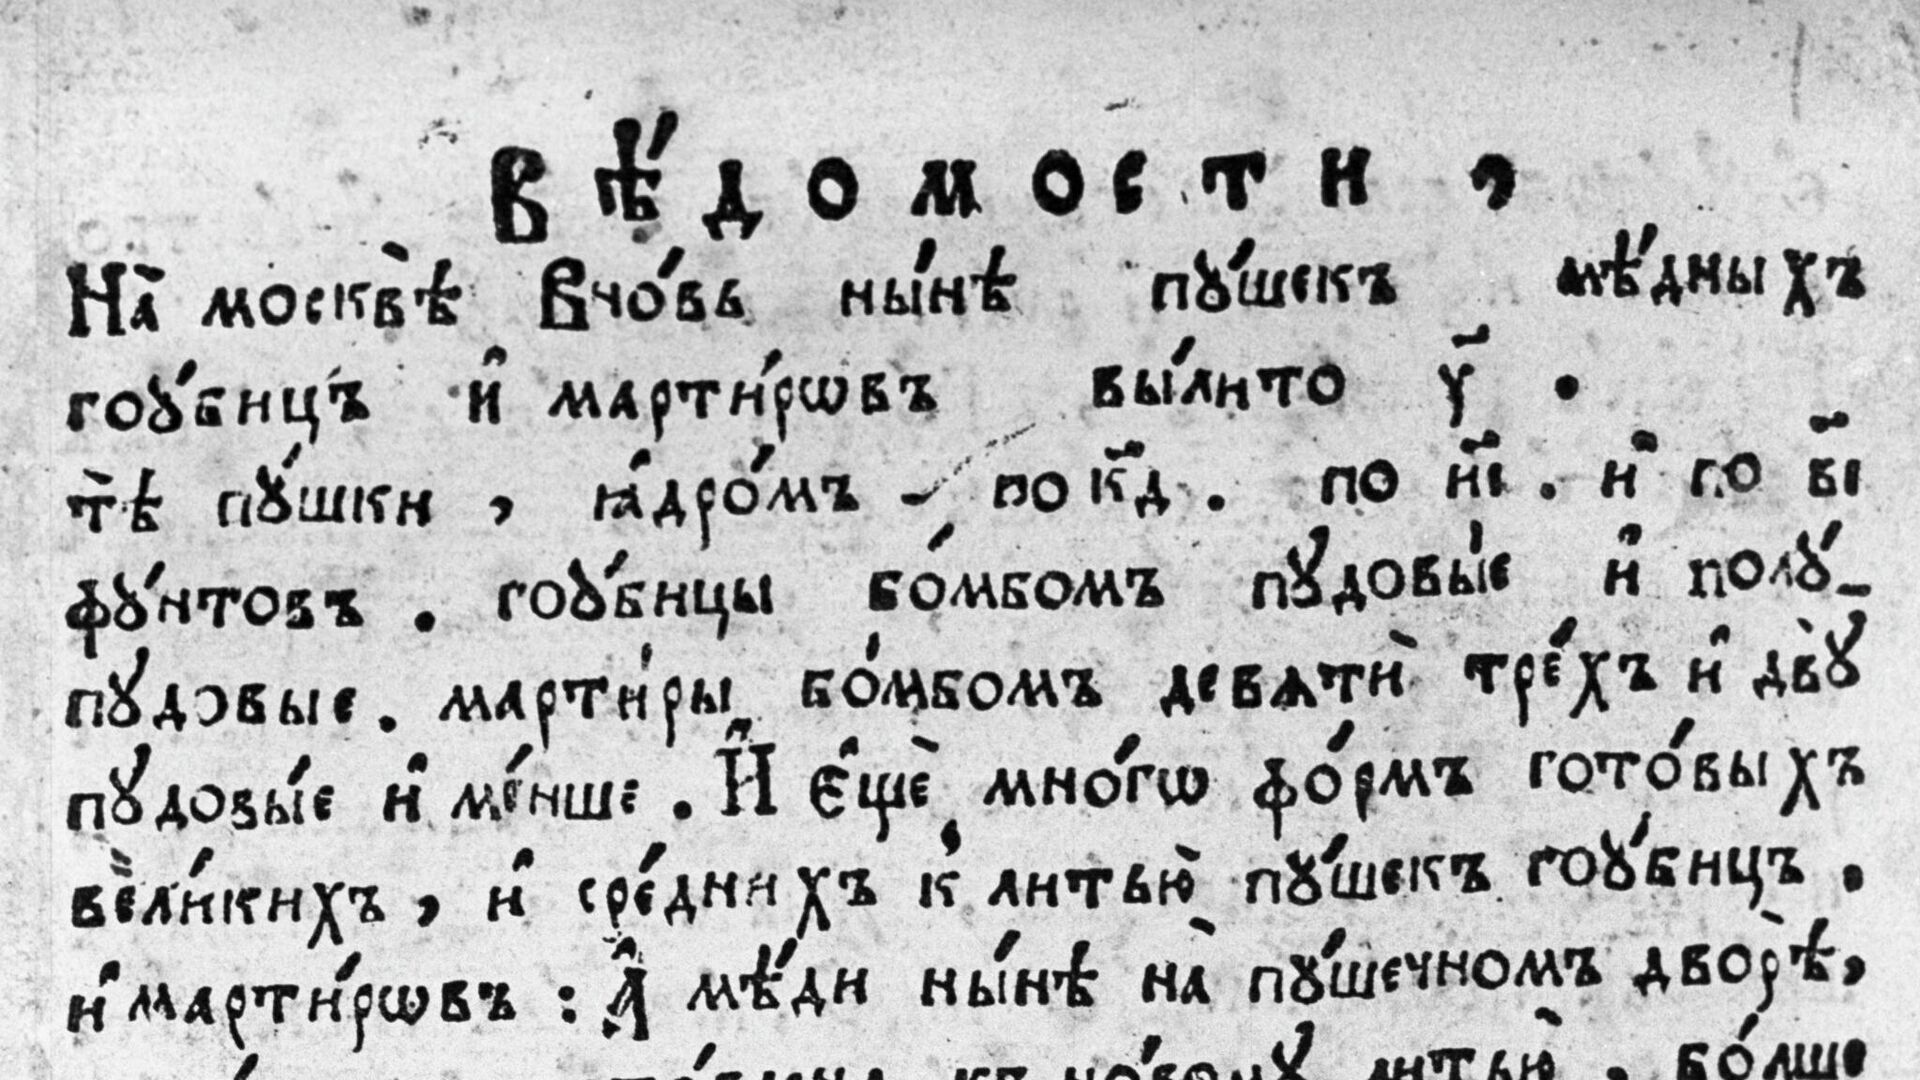 Вѣ́домости ,
На̀ москвѣ̀ Вно́вь ны́нѣ пꙋ́шекъ мѣ́дныхъ
гоꙋ́бицъ и҆ марти́рѡвъ вы́лито у҃ .
тѣ̀ пꙋ́шки , ꙗ҆дро́мъ - по к҃д . по и҃і . и҆ по в҃і
фꙋ́нтовъ . гоꙋ́бицы бо́мбомъ пꙋ́довые и҆ полꙋ́-
пꙋ́довые . марти́ры бо́мбомъ девѧтѝ тре́хъ и҆ двꙋ̀
пꙋ́довые и҆ ме́нше . И҆ е҆щѐ мно́гѡ фо́рмъ гото́выхъ
вели́кихъ , и҆ сре́днихъ к̾ литью̀ пꙋ́шекъ гоꙋ́бицъ .
и҆ марти́рѡвъ : А҆ мѣ́ди ны́нѣ на̀ пꙋ́шечномъ дворѣ̀ ,
къ но́вомꙋ литью̀ , бо́лше